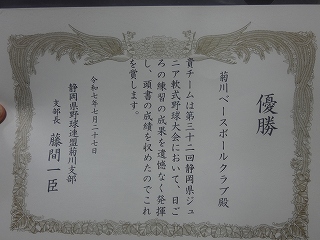 優勝
菊川ベースボールクラブ殿
貴チームは第三十二回静岡県ジュ
ニア軟式野球大会において、日ご
ろの練習の成果を遺憾なく発揮
し、頭書の成績を収めたのでこれ
を賞します。
令和七年七月二十七日
静岡県野球連盟菊川支部
支部長 藤間一臣